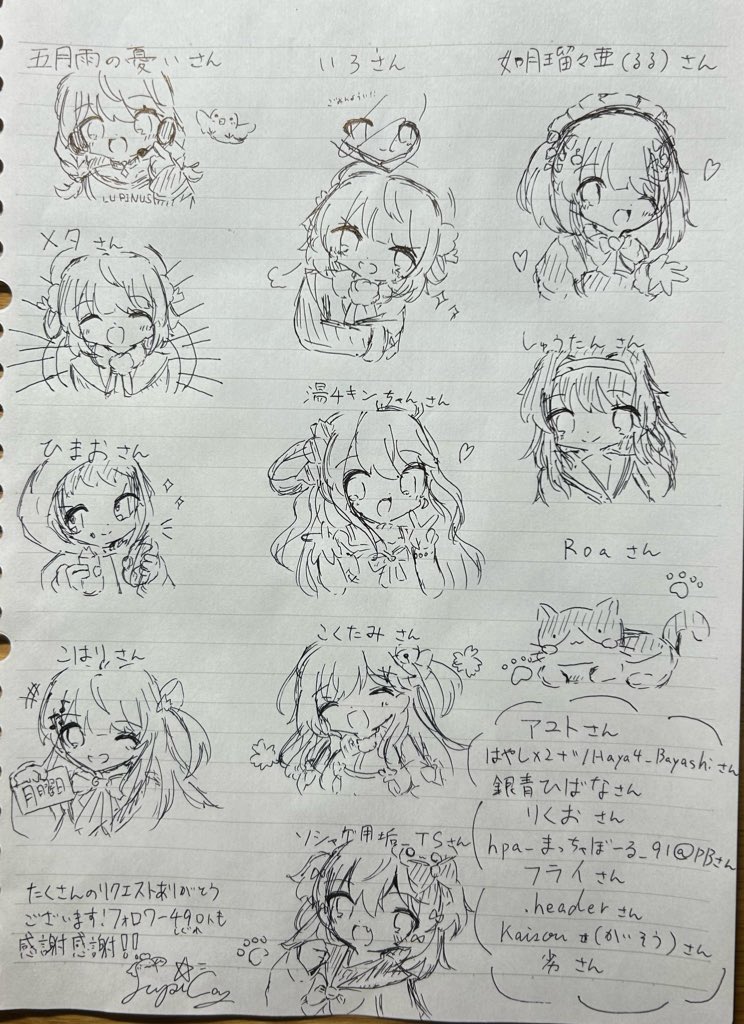 五月雨の憂いさん
いろさん
如月瑠々亜(るる)さん
ごめんよぅぅ!!
LUPINUS
メタさん
しゅうたんさん
湯4キンちゃんさん
ひまおさん
Roaさん
こはりさん
こくたみさん
月曜日
ソシャゲ用垢_TSさん
アユトさん
はやし×2ナギ/Haya4_Bayashiさん
銀青ひばなさん
りくおさん
hpa_まっちゃぼーる_91@PBさん
フライさん
.headerさん
Kaisou (がいそう)さん
劣さん
たくさんのリクエストありがとう
ございます!フォロワー490にんも
感謝感謝!!